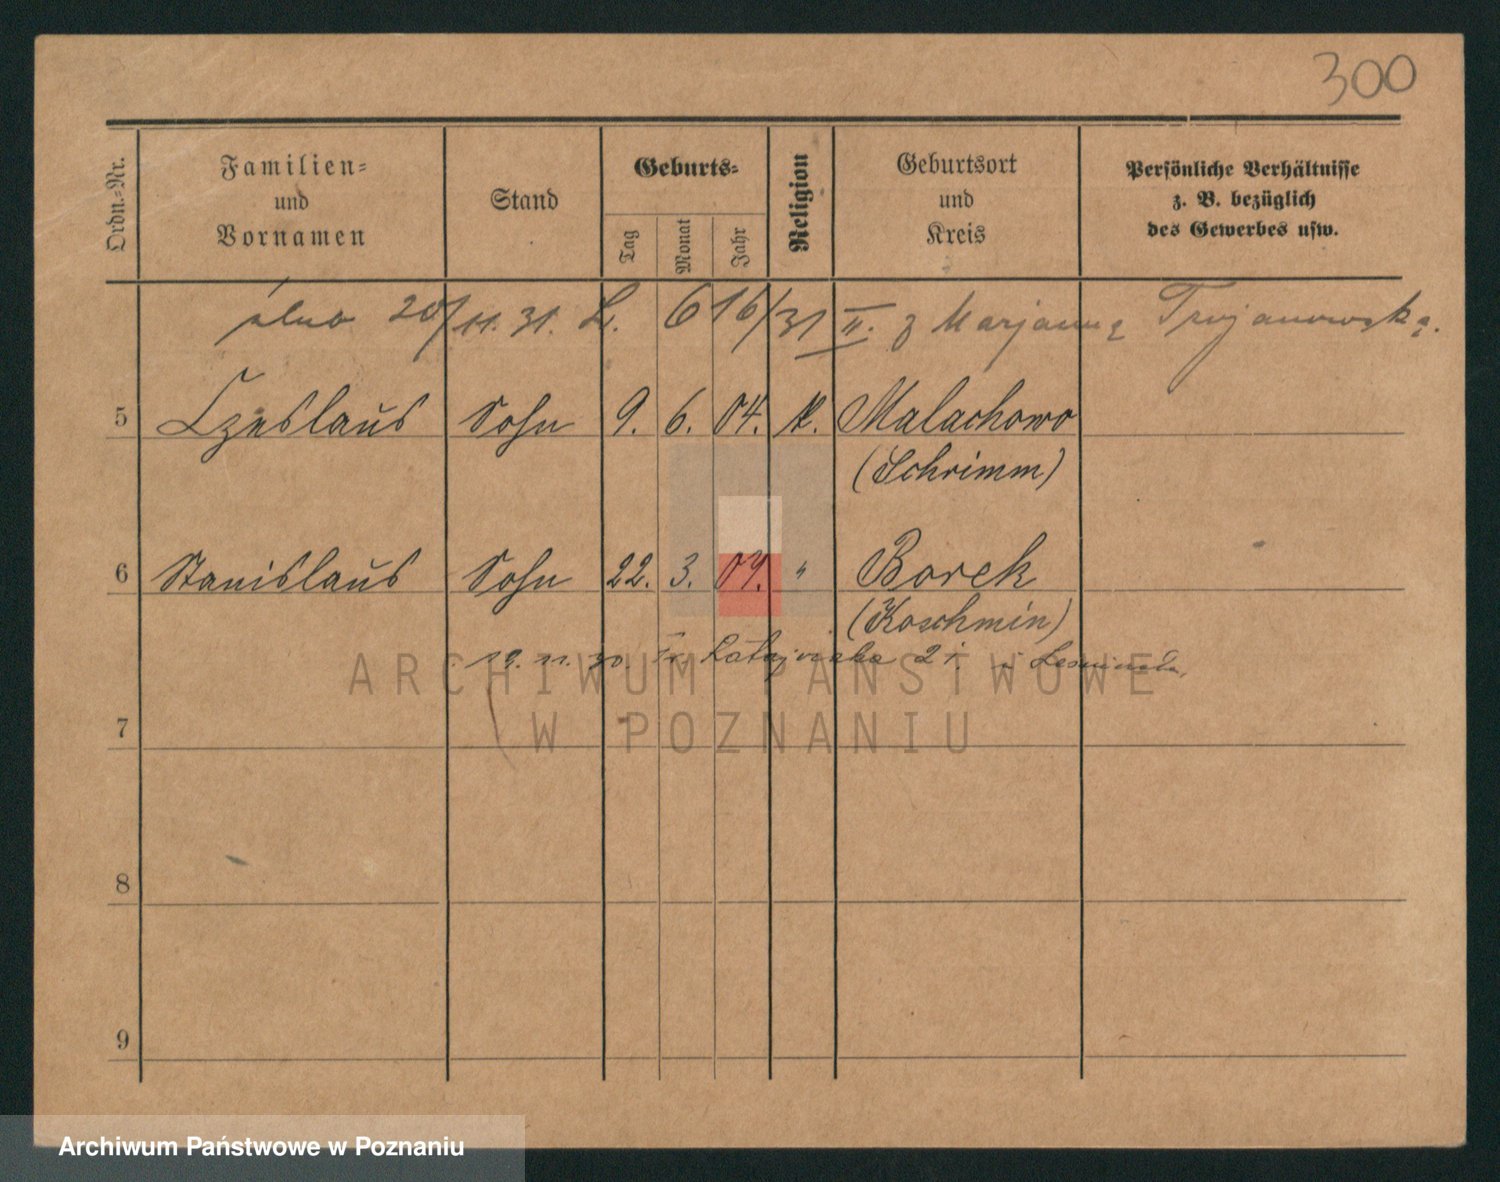 300
Ordn.-Nr.
Familien-
und
Vornamen
Stand
Geburts-
Tag
Monat
Jahr
Religion
Geburtsort
und
Kreis
Persönliche Verhältnisse
z. B. bezüglich
des Gewerbes usw.
ślub 20/11. 31. L. 616/31 II. z Marjanną Trojanowską.
5 Czeslaus Sohn 9. 6. 04. k. Malachowo
(Schrimm)
6 Stanislaus Sohn 22. 3. 07. " Borek
(Koschmin)
19. 11. 30. 2 i.
7
8
9
ARCHIWUM PAŃSTWOWE
W POZNANIU
Archiwum Państwowe w Poznaniu